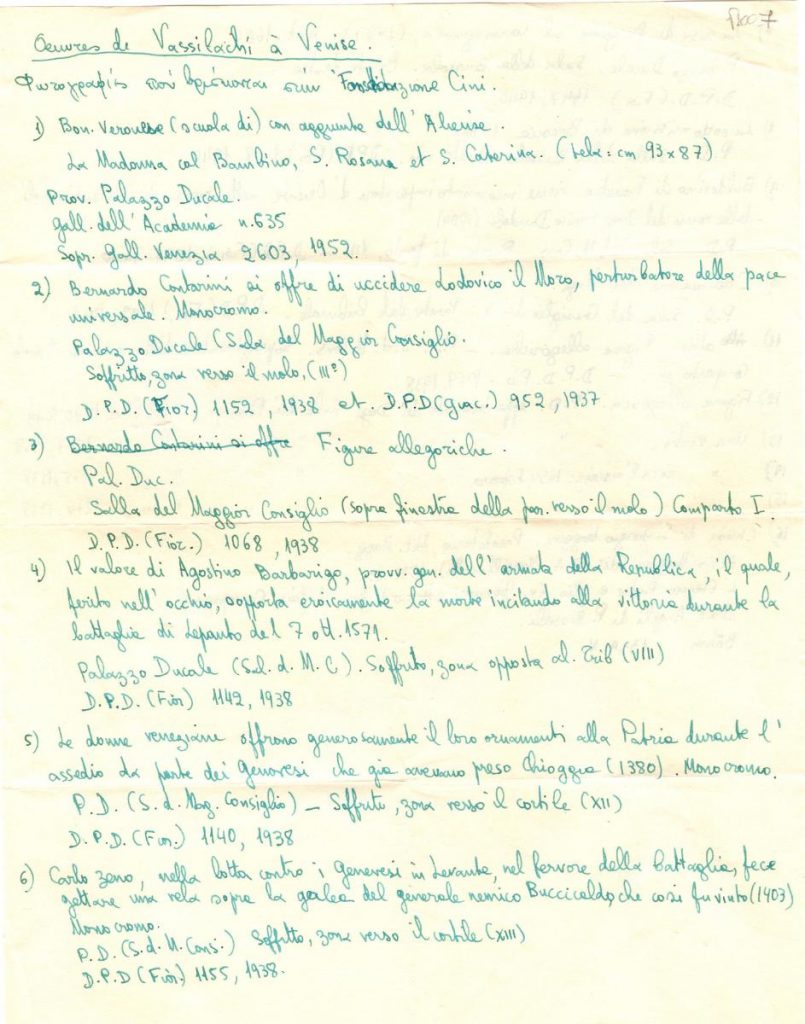 Oeuvres de Vassilachi à Venise.
Φωτογραφίες πού βρίσκονται στην Fondazione Cini.
1) Bon. Veronese (scuola di) con aggiunte dell'Aliense.
La Madonna col Bambino, S. Rosana et S. Caterina. (tela: cm 93 x 87)
Prov. Palazzo Ducale.
Gall. dell'Academia n. 635
Sopr. Gall. Venezia 2603, 1952.
2) Bernardo Contarini si offre di uccidere Lodovico il Moro, perturbatore della pace
universale. Monocromo.
Palazzo Ducale (Sala del Maggior Consiglio.
Soffritto, zona verso il molo, (IIIº)
D.P.D. (Fior.) 1152, 1938 et. D.P.D (Giac.) 952, 1937
3) Bernardo Contarini si offre Figure allegoriche.
Pal. Duc.
Salla del Maggior Consiglio (sopra finestra della par. verso il molo) Comparto I.
D.P.D. (Fior.) 1068, 1938
4) Il valore di Agostino Barbarigo, provv. gen. dell'armata della Republica, il quale,
ferito nell'occhio, sopporta eroicamente la morte incitando alla vittoria durante la
battaglia di Lepanto del 7 ott. 1571.
Palazzo Ducale (Sal. d. M. C). Soffitto, zona opposta al. Trib (VIII)
D.P.D. (Fior) 1142, 1938
5) Le donne veneziane offrono generosamente il loro ornamenti alla Patria durante l'
assedio da parte dei Genovesi che gia avevano preso Chioggia (1380). Monocromo.
P.D. (S. d. Mag. Consiglio) – Soffitto, zona verso il cortile (XII)
D.P.D. (Fior.) 1140, 1938
6) Carlo Zeno, nella lotta contro i Genevesi in Levante, nel fervore della battaglia, fece
gettare una vela sopra la galea del generale nemico Buccicaldo, che cosi fu vinto (1403)
Monocromo.
P.D. (S. d. M. Cons.) Soffitto, zona verso il cortile (XIII)
D.P.D (Fior.) 1155, 1938.